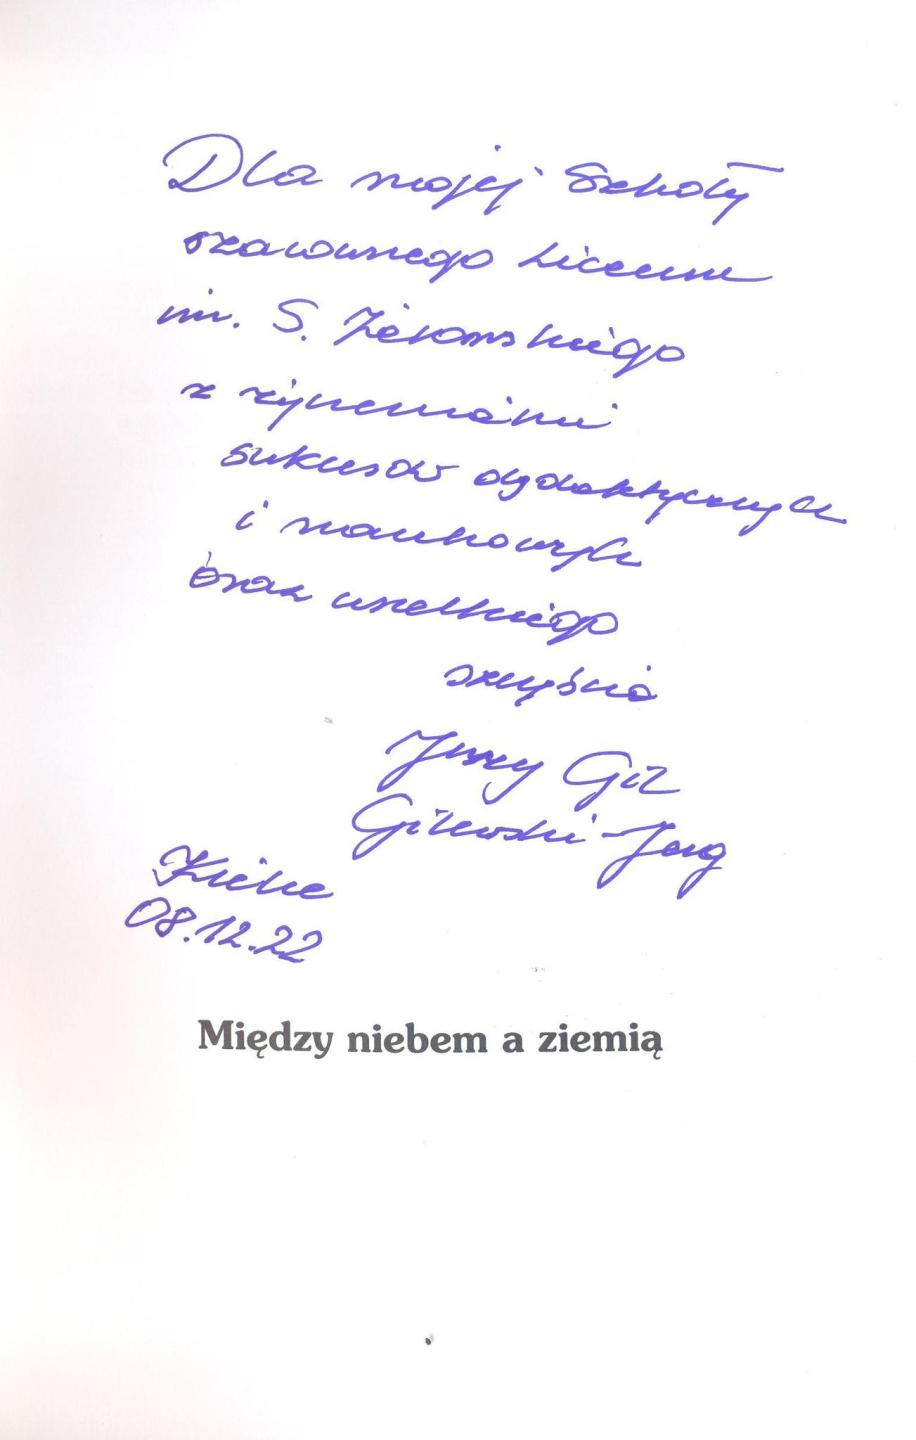 Dla mojej Szkoły
szacownego Liceum
im. S. Żeromskiego
z życzeniami
sukcesów dydaktycznych
i naukowych
oraz wszelkiego
szczęścia
Jerzy Gil
Gilewski-Jerg
Kielce
08.12.22
Między niebem a ziemią